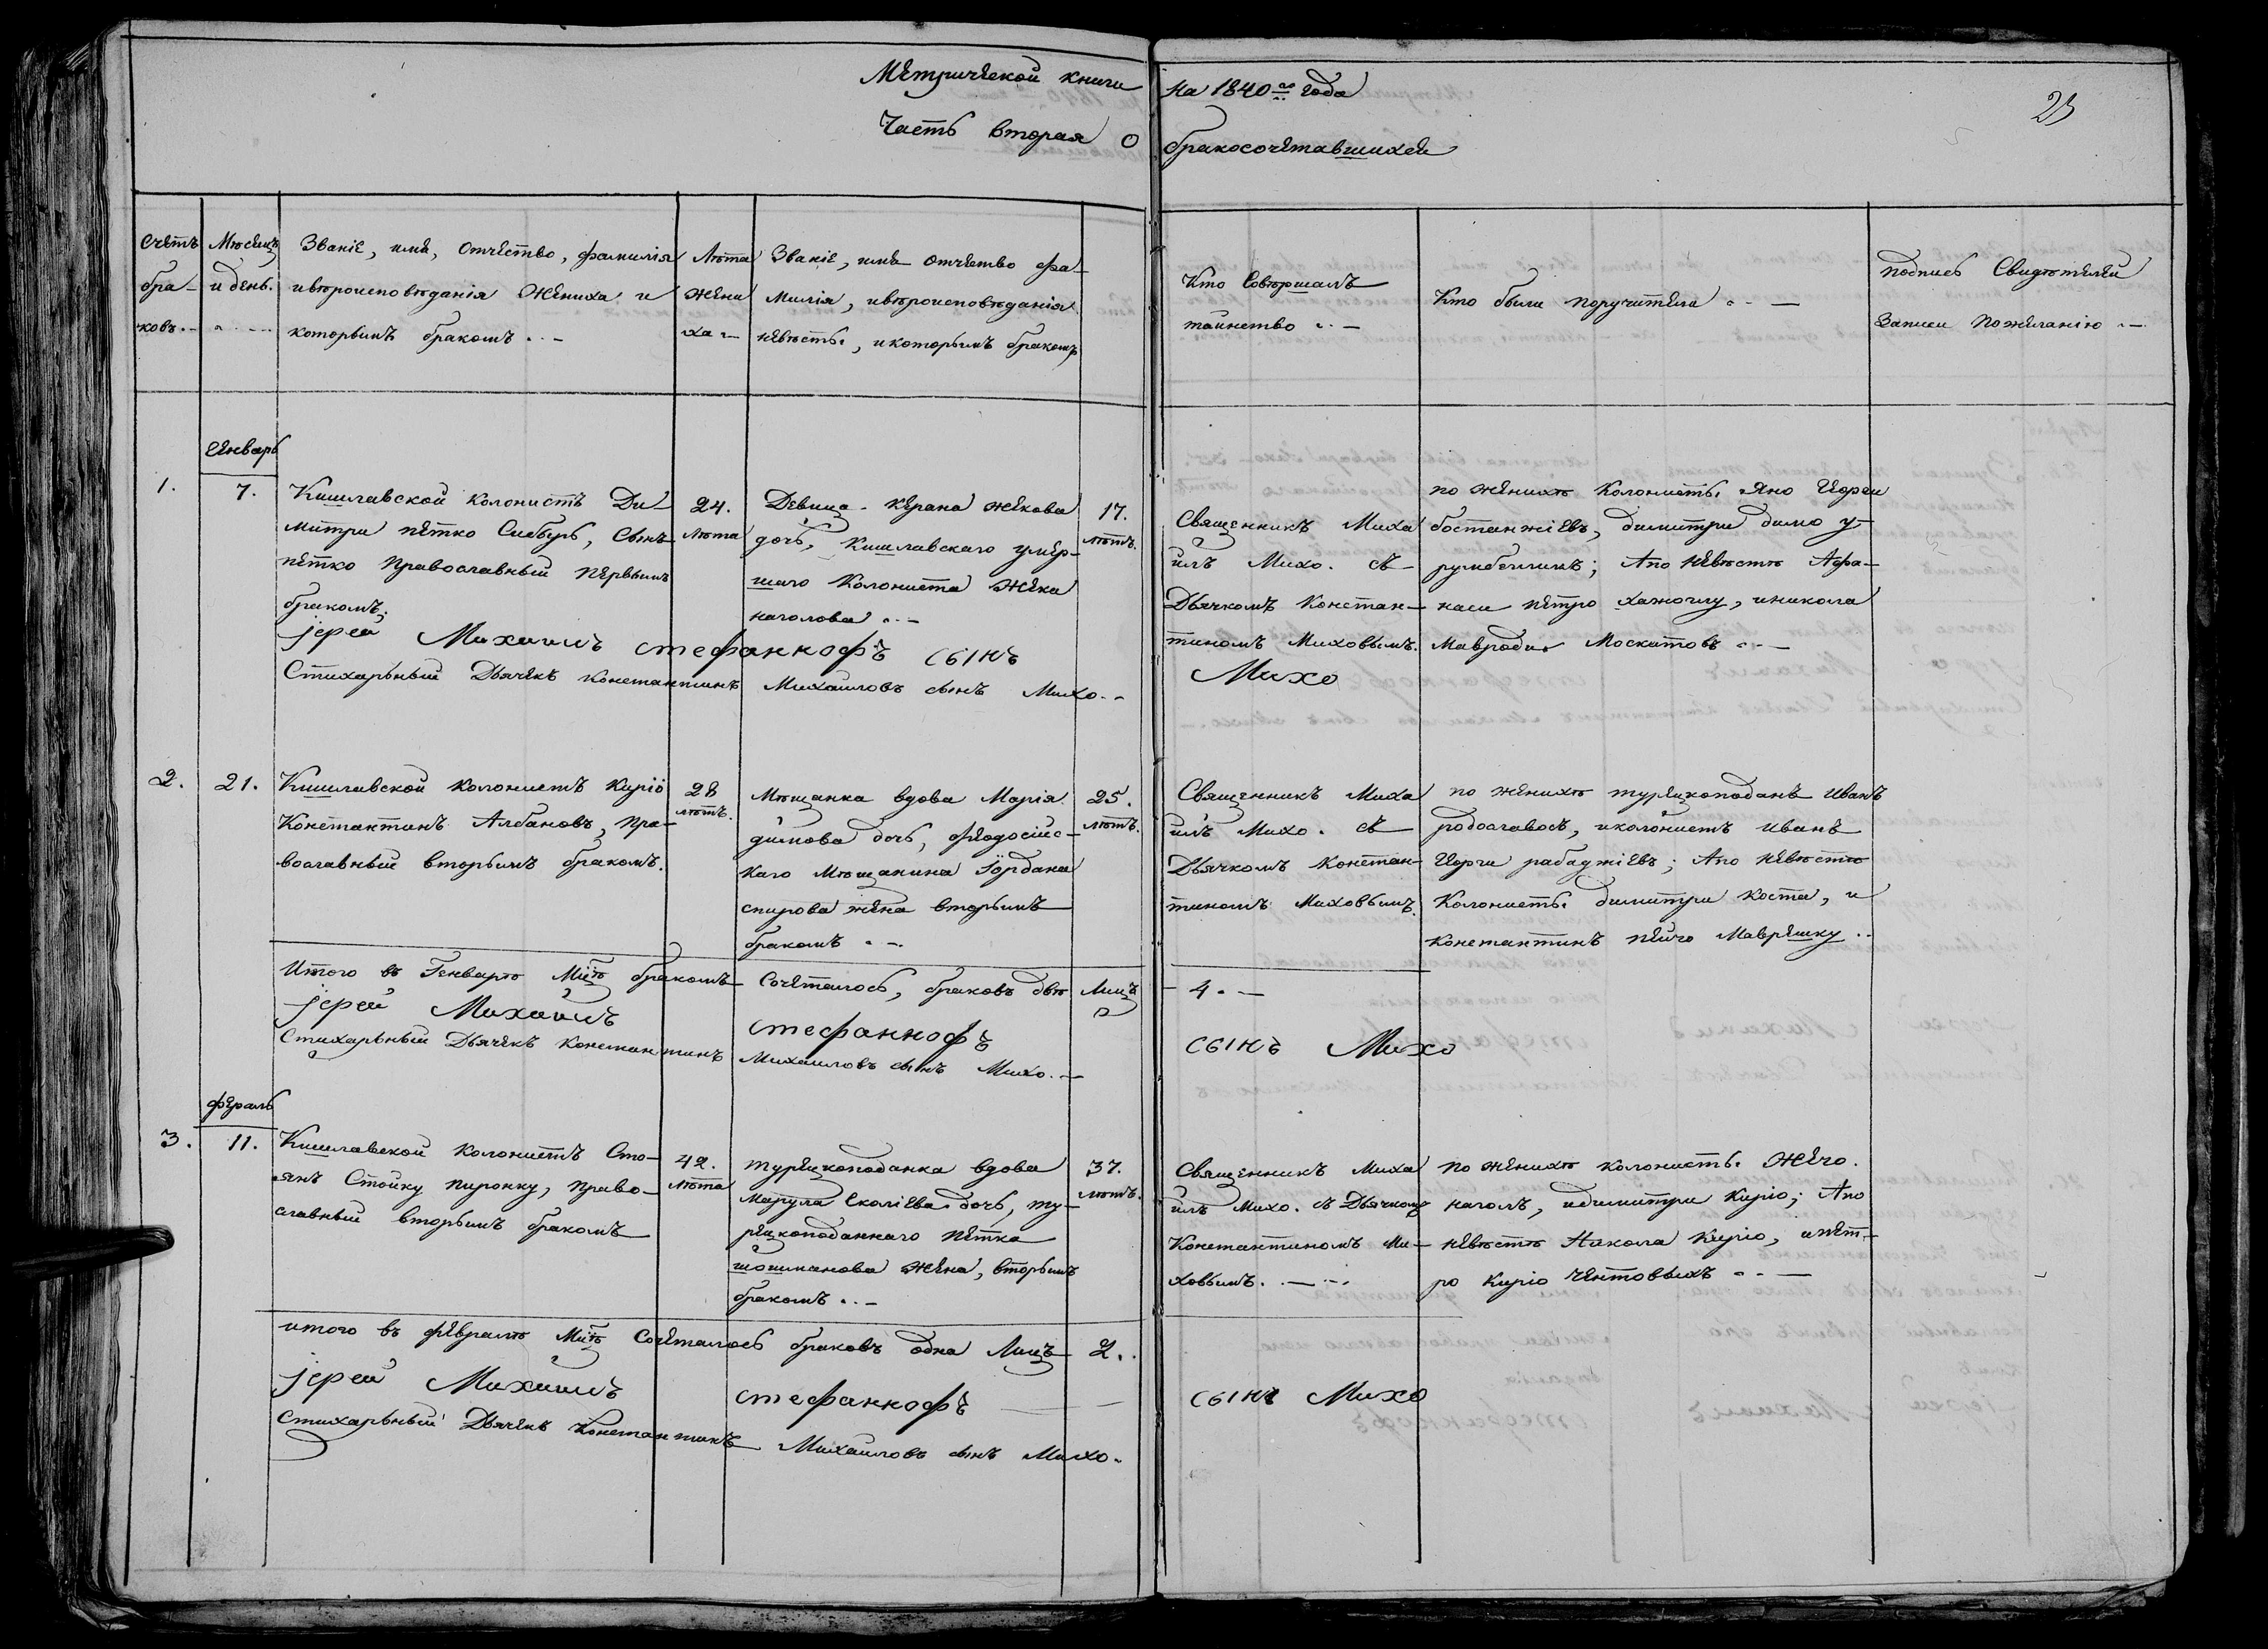 Метрической книги на 1840го года
23
Часть вторая о бракосочетавшихся
Счетъ
бра-
ковъ.
Месяцъ
и день.
Званіе, имя, отчество, фамилія
и вѣроисповѣданія Жениха и
которымъ бракомъ
Лѣта
жени
ха
Званіе, имя отчество фа-
милія, и вѣроисповѣданія
невѣсты, и которымъ бракомъ
Кто Совершалъ
таинство
Кто были поручители
Подпись Свидѣтелей
Записи по желанію
Январь
1.
7.
Кишлавской колонистъ Ди-
митри петко Сынъ
петко Православный первымъ
бракомъ.
24.
лѣта
Девица Керана жекова
дочь, Кишлавскаго умер-
шаго Колониста Жека
наголова
17.
лѣтъ.
Священникъ Миха
илъ Михо. съ
Дьячкомъ Констан-
тиномъ Миховымъ.
по женихѣ Колонисты Яно Георги
бостанжіевъ, димитри димо у-
; А по невѣстѣ Афа-
наси петро , и никола
Мавроди Москатовъ
Іерей Михаилъ стефанкофъ сынъ Михо
Стихарный Дьячекъ Константинъ Михаиловъ сынъ Михо
2.
21.
Кишлавской колонистъ Киріо
Константинъ Албановъ, пра-
вославный вторымъ бракомъ.
28
лѣтъ.
Мѣщанка вдова Марія
димова дочь, феодосійс-
каго Мѣщанина Іордана
спирова жена вторымъ
бракомъ
25.
лѣтъ.
Священникъ Миха
илъ Михо. съ
Дьячкомъ Констан-
тиномъ Миховымъ.
по женихѣ турецкоподанъ Иванъ
родославосъ, и колонистъ Иванъ
Георги рабаджіевъ; А по невѣстѣ
Колонисты димитри коста, и
константинъ пейчо Маврешку
Итого въ Генварѣ Мцѣ бракомъ Сочеталось, браковъ двѣ Лицъ 4.
Іерей Михаилъ стефанкофъ сынъ Михо
Стихарный Дьячекъ Константинъ Михаиловъ сынъ Михо.
фераль
3.
11.
Кишлавской колонистъ Сто-
янъ Стойку пиронку, право-
славный вторымъ бракомъ
42.
лѣта
турецкоподанка вдова
Марула Скаліева дочь, ту-
рецкоподаннаго петка
шошманова жена, вторымъ
бракомъ
37.
лѣтъ.
Священникъ Миха
илъ Михо. съ Дьячкомъ
Константиномъ Ми-
ховымъ.
по женихѣ колонисты Жечо
наголъ, и димитри Киріо; А по
невѣстѣ Никола Киріо, и пет-
ро Киріо Чентовыхъ
итого въ февралѣ Мцѣ Сочеталось браковъ одна Лицъ 2.
Іерей Михаилъ стефанкофъ сынъ Михо
Стихарный Дьячекъ Константинъ Михаиловъ сынъ Михо.